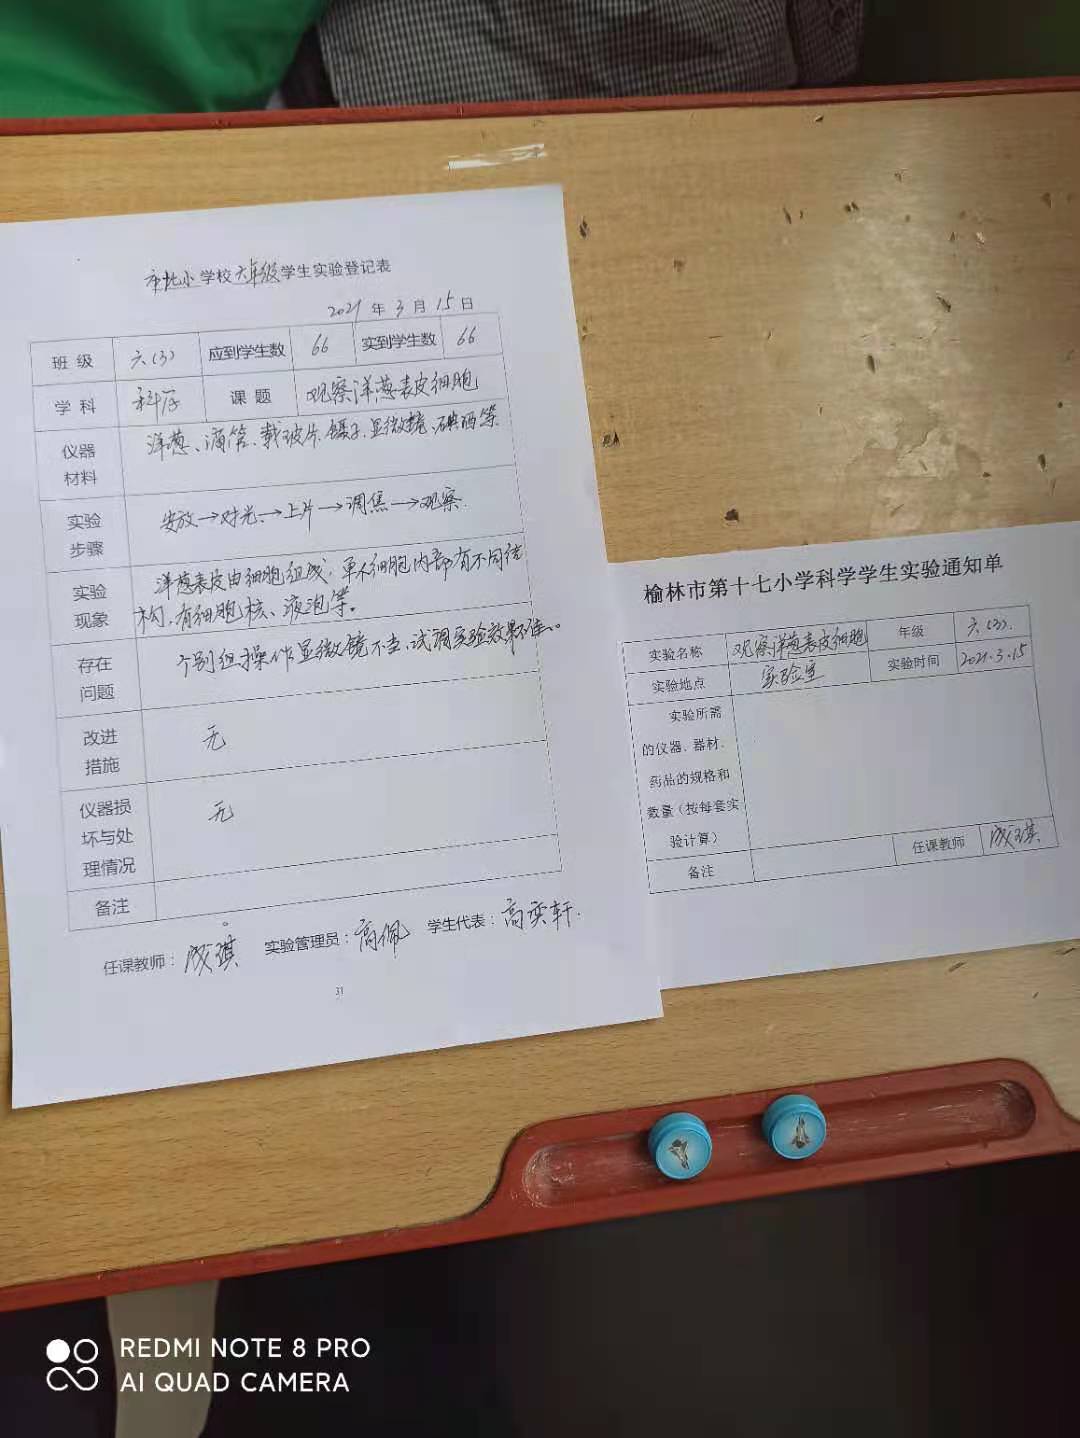 市北小学校六年级学生实验登记表
2021年3月15日
班级 六(3) 应到学生数 66 实到学生数 66
学科 科学 课题 观察洋葱表皮细胞
仪器材料 洋葱、滴管、载玻片、镊子、显微镜、碘酒等
实验步骤 安放→对光→上片→调焦→观察.
实验现象 洋葱表皮由细胞组成,单个细胞内部有不同结
构,有细胞核、液泡等。
存在问题 个别组操作显微镜不当,试调实验效果不佳。
改进措施 无
仪器损坏与处理情况 无
备注
任课教师: 成琪 实验管理员: 高佩 学生代表: 高奕轩.
31
榆林市第十七小学科学学生实验通知单
实验名称 观察洋葱表皮细胞 年级 六(3).
实验地点 实验室 实验时间 2021.3.15
实验所需
的仪器、器材、
药品的规格和
数量(按每套实
验计算)
任课教师 成琪
备注
REDMI NOTE 8 PRO
AI QUAD CAMERA